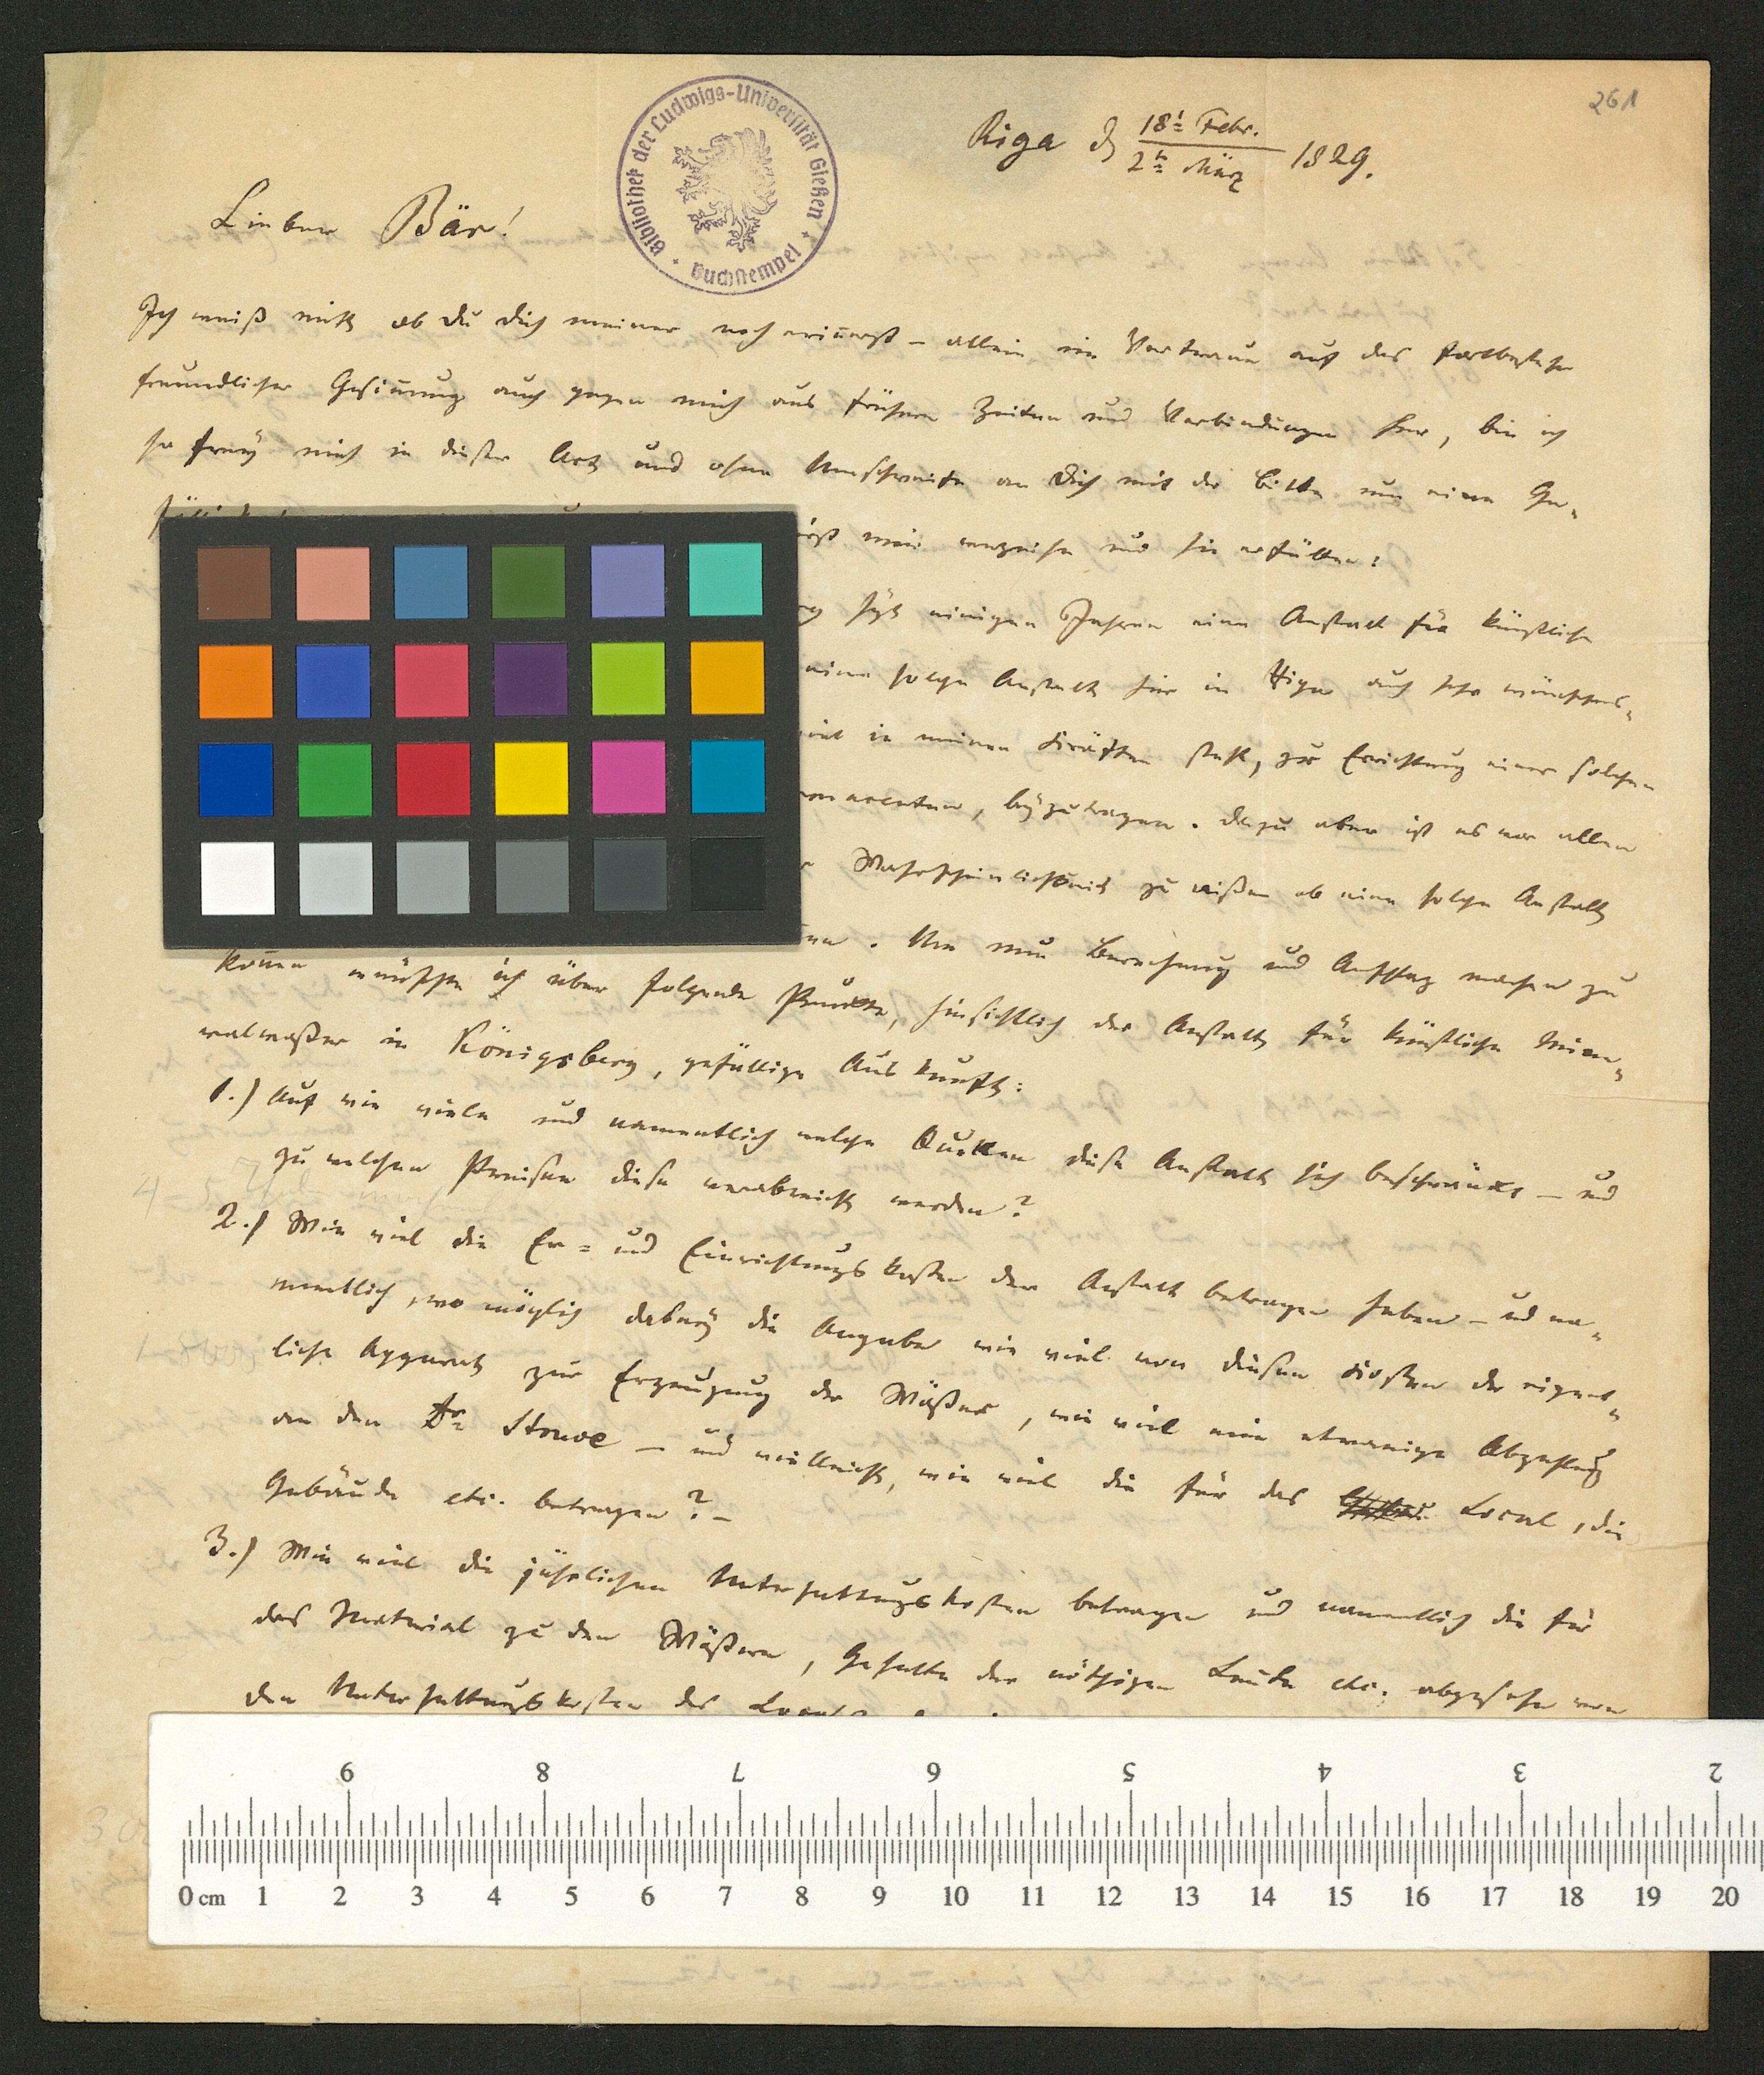 261
Bibliothek der Ludwigs-Universität Gießen
Buchstempel
Riga d 18t Febr. / 2t März 1829.
Lieber Bär!
Ich weiß nicht ob Du Dich meiner noch erinnerst – allein im Vertrauen auf das Fortbestehen
freundlicher Gesinnung auch gegen mich aus frühern Zeiten und Verbindungen her, bin ich
so frey mich in dieser Art und ohne Umschweife an Dich mit der Bitte um eine Ge-
mir verzeihen und sie erfüllen:
seit einigen Jahren eine Anstalt für künstliche
eine solche Anstalt hier in Riga auch sehr wünschens-
viel in meinen Kräften steht, zur Errichtung einer solchen
beyzutragen. Dazu aber ist es vor allem
Wahrscheinlichkeit zu wissen ob eine solche Anstalt
. Um nun Berechnung und Anschlag machen zu
können wünsche ich über folgende Punkte, hinsichtlich der Anstalt für künstliche Mine-
ralwaßer in Königsberg, gefällige Auskunft:
1.) Auf wie viele und namentlich welche Quellen diese Anstalt sich beschränkt – und
zu welchen Preisen diese verabreicht werden?
2.) Wie viel die Er= und Einrichtungskosten der Anstalt betragen haben – und na-
mentlich, wo möglich dabey die Angabe wie viel von diesen Kosten der eigent-
liche Apparat zur Erzeugung der Wäßer, wie viel eine etwanige Abzahlung
an den Dr Struve – und vielleicht, wie viel die für das Local, die
Gebäude etc. betragen? –
3.) Wie viel die jährlichen Unterhaltungskosten betragen und namentlich die für
das Material zu den Wäßern, Gehalte der nöthigen Leute etc. abgesehen von
den Unterhaltungskosten des
6 8 7 6 5 4 3 2
0 cm 1 2 3 4 5 6 7 8 9 10 11 12 13 14 15 16 17 18 19 20